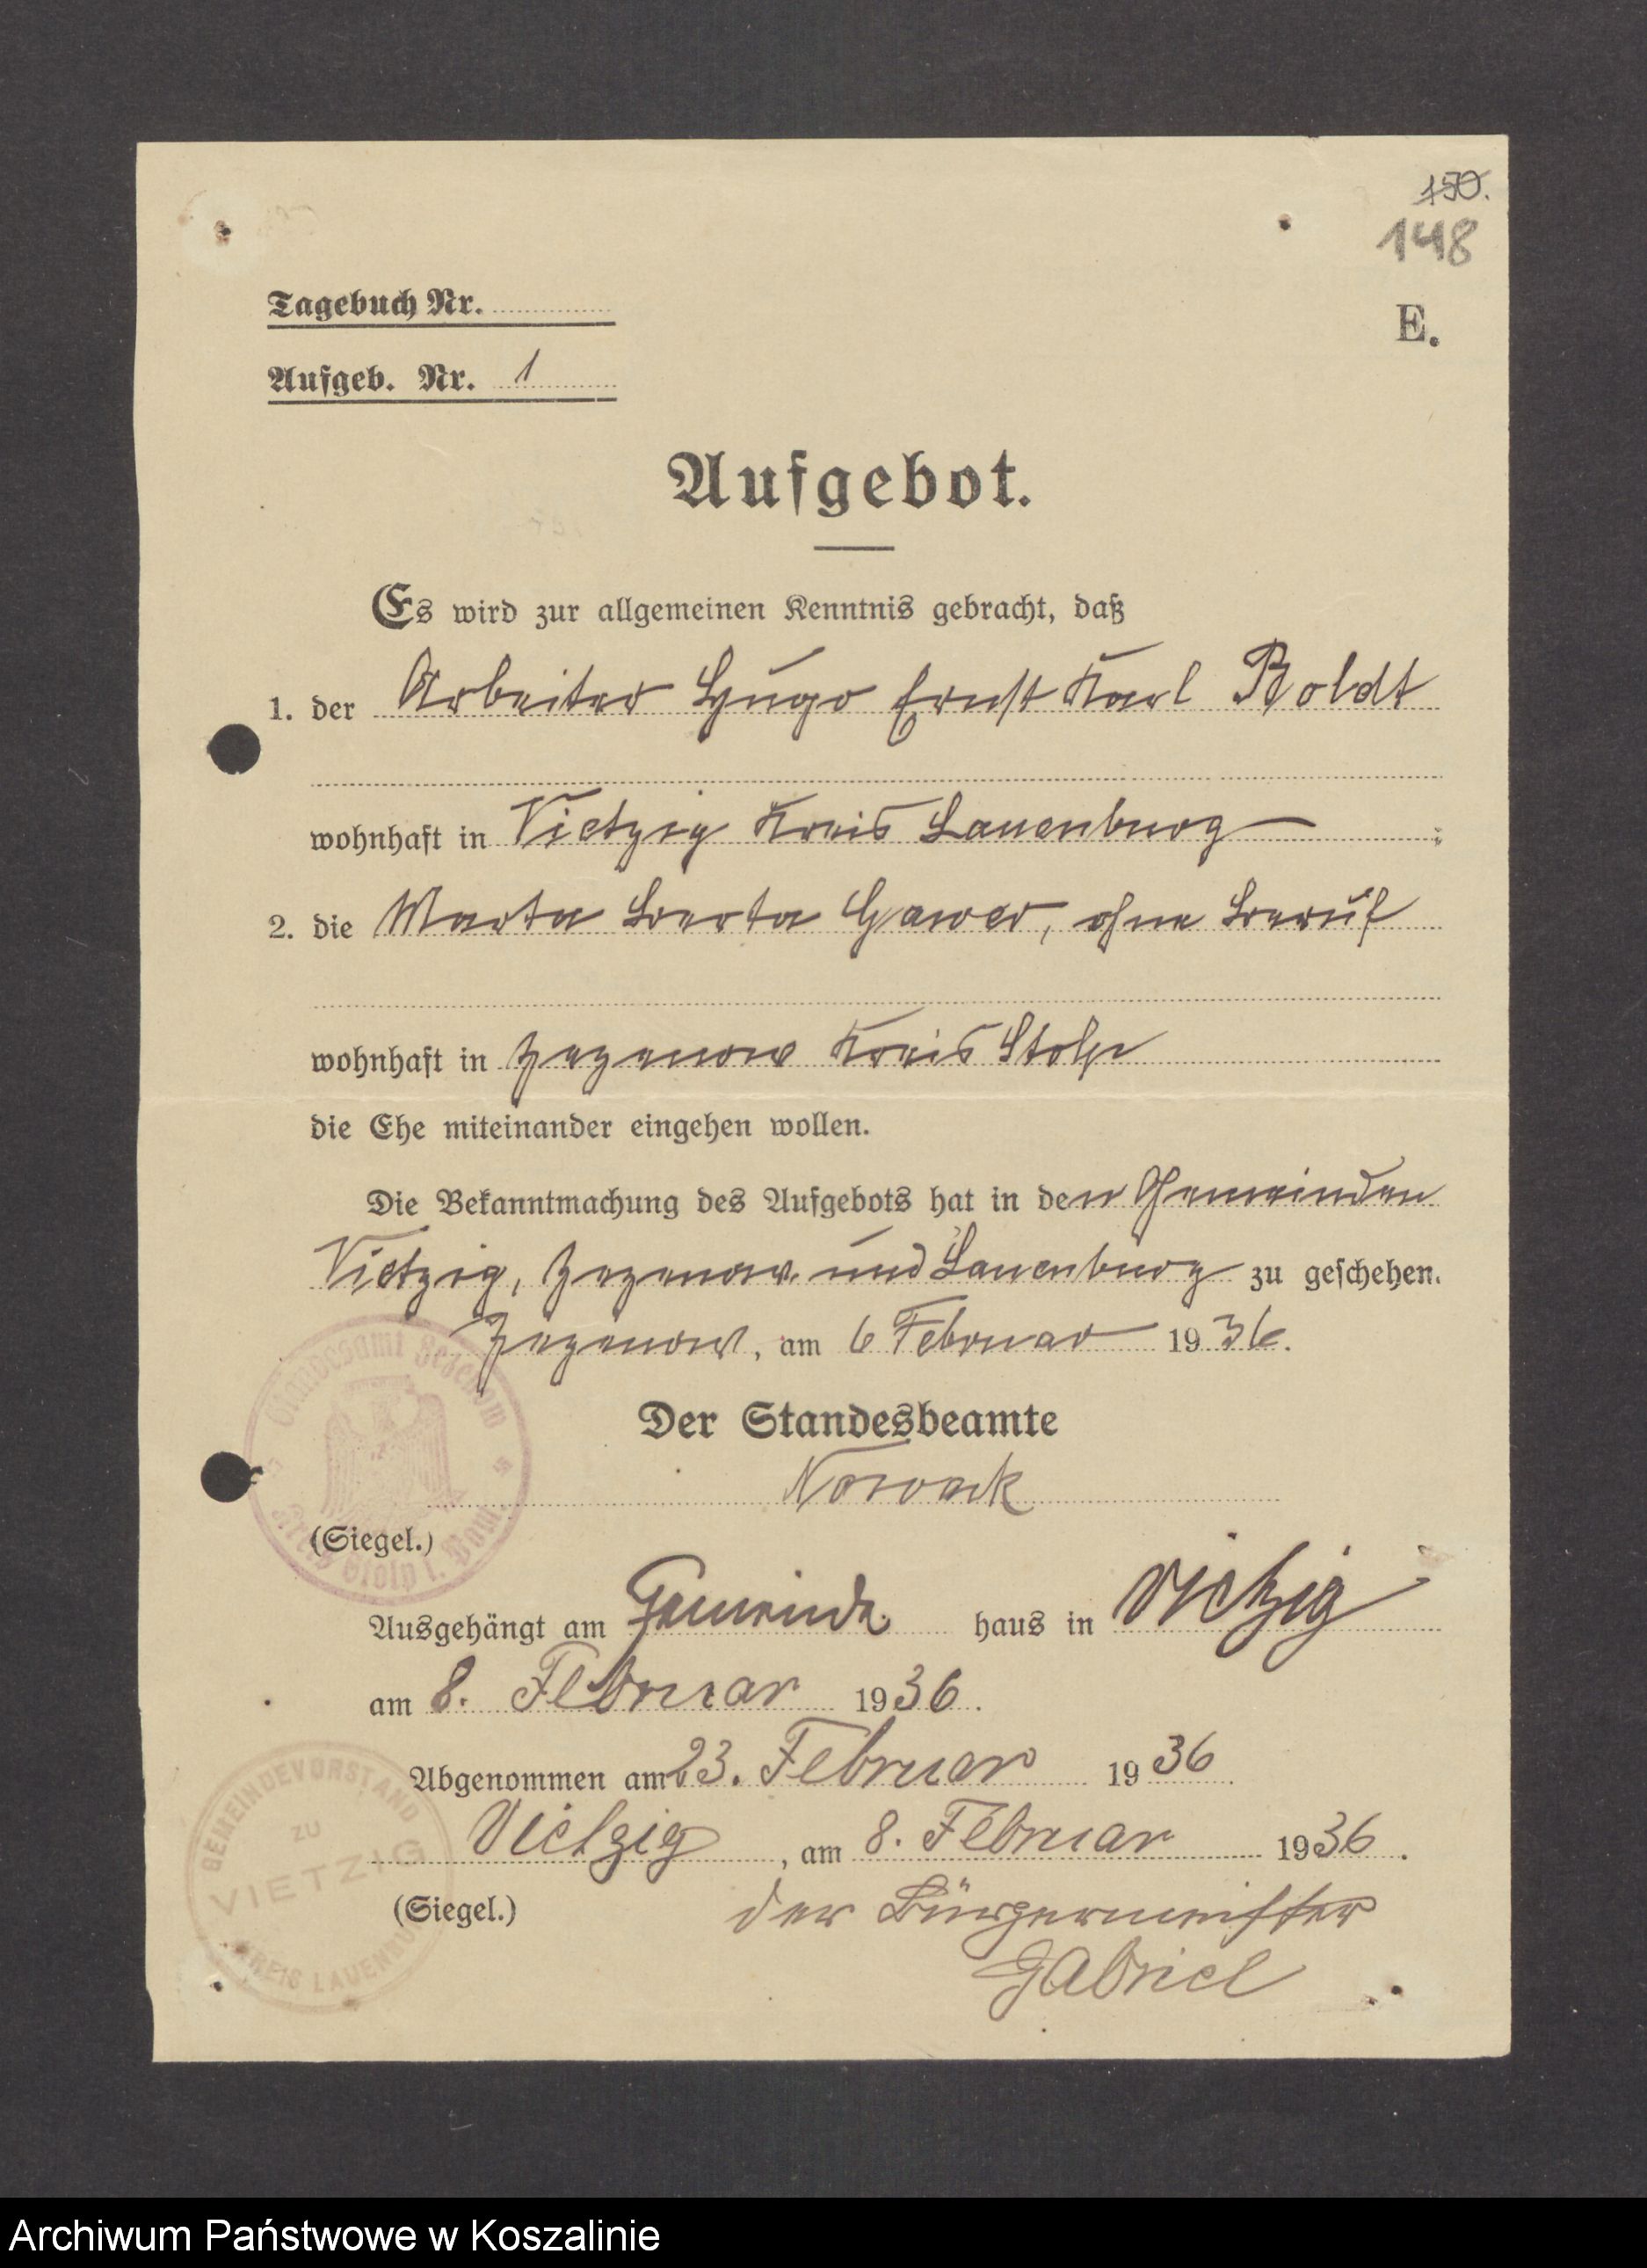 150.
148
Tagebuch Nr.
E.
Aufgeb. Nr. 1
Aufgebot.
Es wird zur allgemeinen Kenntnis gebracht, daß
1. der Arbeiter Hugo Ernst Karl Boldt
wohnhaft in Vietzig Kreis Lauenburg ;
2. die Marta Berta Gawer, ohne Beruf
wohnhaft in Zezenow Kreis Stolp
die Ehe miteinander eingehen wollen.
Die Bekanntmachung des Aufgebots hat in den Gemeinden
Vietzig, Zezenow und Lauenburg zu geschehen.
Zezenow, am 6 Februar 1936.
Standesamt Zezenow
Kreis Stolp i. Pom.
Der Standesbeamte
Nowack
(Siegel.)
Ausgehängt am Gemeinde haus in Vietzig
am 8. Februar 1936.
Abgenommen am 23. Februar 1936
Vietzig, am 8. Februar 1936.
GEMEINDEVORSTAND
ZU
VIETZIG
KREIS LAUENBURG
(Siegel.)
der Bürgermeister
Gabriel
Archiwum Państwowe w Koszalinie